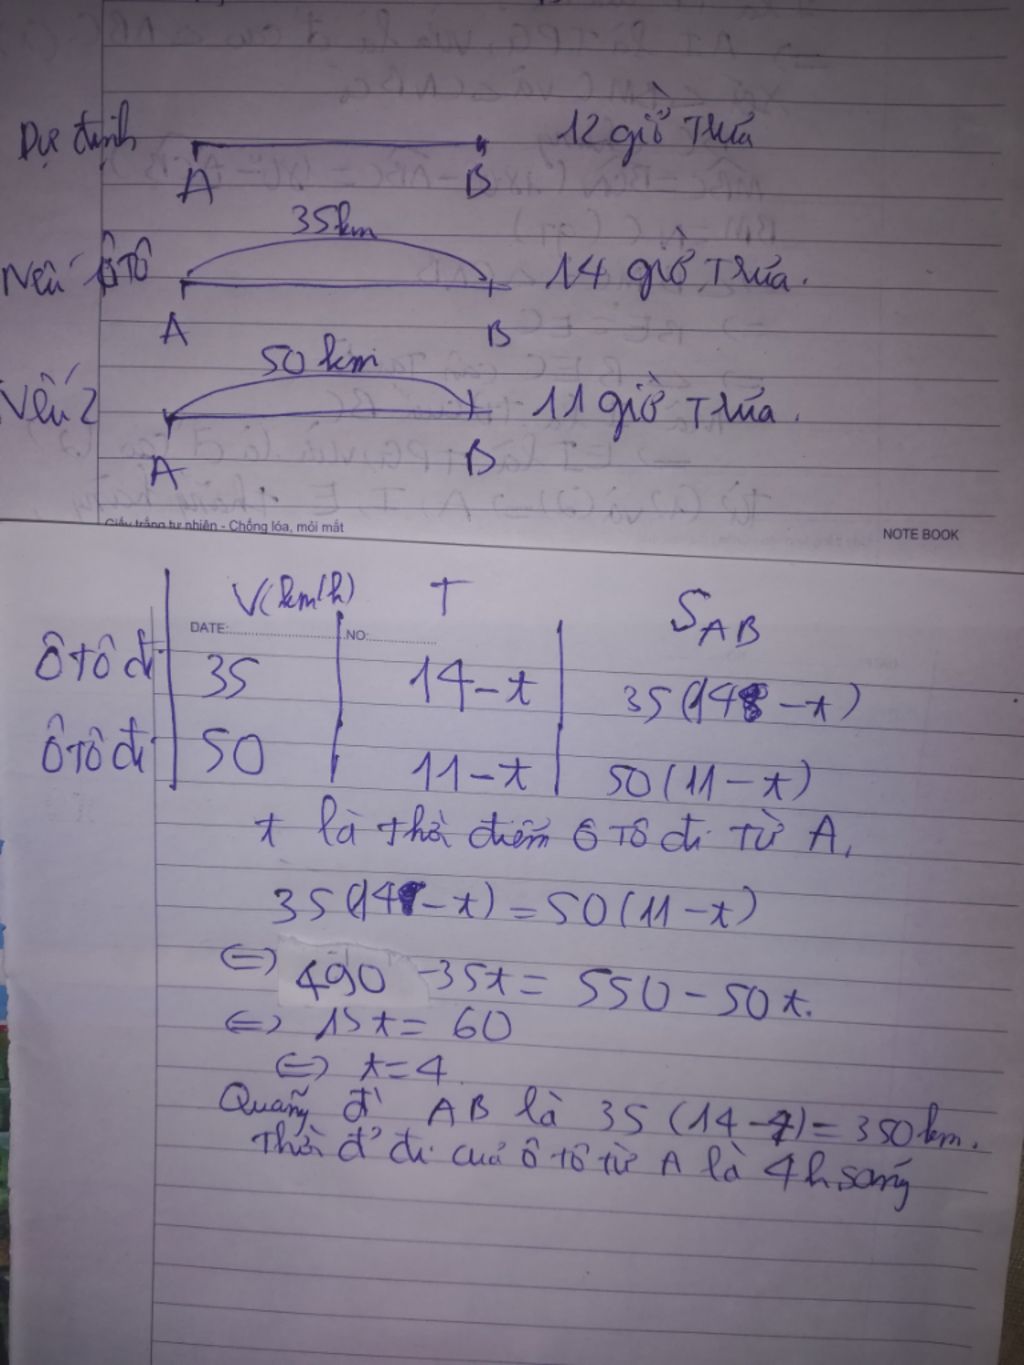 Dự định A B 12 giờ trưa
Nếu ôtô 35km A B 14 giờ trưa.
Nếu 2 50 km A B 11 giờ trưa.
Giấy trắng tự nhiên - Chống lóa, mỏi mắt NOTE BOOK
V(km/h) T S_AB
DATE: NO:
Ô tô đi 35 14 - t 35(14 - t)
Ô tô đi 50 11 - t 50(11 - t)
t là thời điểm ô tô đi từ A.
35(14 - t) = 50(11 - t)
<=> 490 - 35t = 550 - 50t.
<=> 15t = 60
<=> t = 4.
Quãng đ' AB là 35 (14 - 4) = 350km.
Thời đ' đi của ô tô từ A là 4h sáng